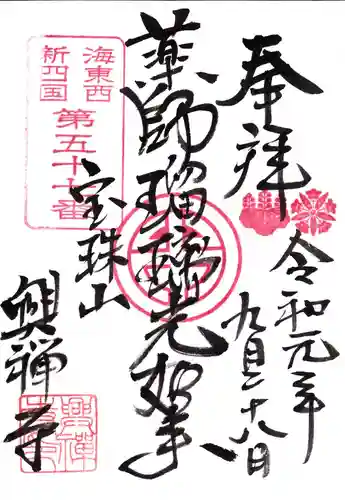 奉拝
令和元年
九月二十八日
薬師瑠璃光如来
宝珠山
興禅寺
海東西
新四国
第五十七番